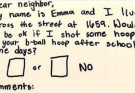 ear neighbor,
y name is Emma and I liv
ross the street at 1659. Would
be ok if I shot some hoop
your b-ball hoop after schoo
me days?
or NO
mments: